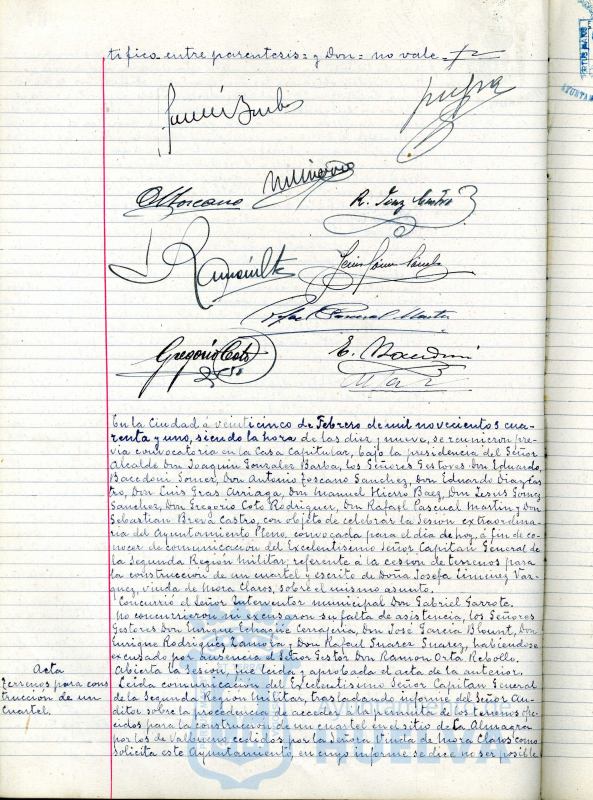 tifico-entre parentesis= y Don= no vale
R. Gonz Castro
Rafael Pascual Martin
Gregorio Coto
E. Bacedoni
En la Ciudad á veinticinco de Febrero de mil novecientos cua-
renta y uno, siendo la hora de las diez y nueve, se reunieron pre-
via convocatoria en la Casa Capitular, bajo la presidencia del Señor
Alcalde Don Joaquin Gonzalez Barba, los Señores Gestores Don Eduardo
Bacedoni Gomez, Don Antonio Toscano Sanchez, Don Eduardo Diaz Cas
tro, Don Luis Gras Arriaga, Don Manuel Hierro Baez, Don Jesus Gomez
Sanchez, Don Gregorio Coto Rodriguez, Don Rafael Pascual Martin y Don
Sebastian Brevá Castro, con objeto de celebrar la Sesion extraordina-
ria del Ayuntamiento Pleno, convocada para el dia de hoy, á fin de co-
nocer de comunicacion del Excelentisimo Señor Capitan General de
la Segunda Region Militar, referente á la cesion de terrenos para
la construccion de un cuartel y escrito de Doña Josefa Jimenez Vaz-
quez, viuda de Mora Claros, sobre el mismo asunto.
Concurrio el Señor Interventor municipal Don Gabriel Garrote.
No concurrieron ni escusaron su falta de asistencia, los Señores
Gestores Don Enrique Echarive Cerrageria, Don José Garcia Blount, Don
Enrique Rodriguez Zamora y Don Rafael Suarez Suarez, habiendose
excusado por ausencia el Señor Gestor Don Ramon Orta Rebollo.
Abierta la Sesion, fué leida y aprobada el acta de la anterior.
Acta
Terrenos para cons
truccion de un
Cuartel.
Leida comunicacion del Excelentisimo Señor Capitan General
de la Segunda Region Militar, trasladando informe del Señor Au-
ditor sobre la procedencia de acceder á la permuta de los terrenos ofre-
cidos para la construccion de un cuartel en el sitio de La Almagra
por los de Valbueno, cedidos por la Señora Viuda de Mora Claros como
solicita este Ayuntamiento, en cuyo informe se dice no ser posible